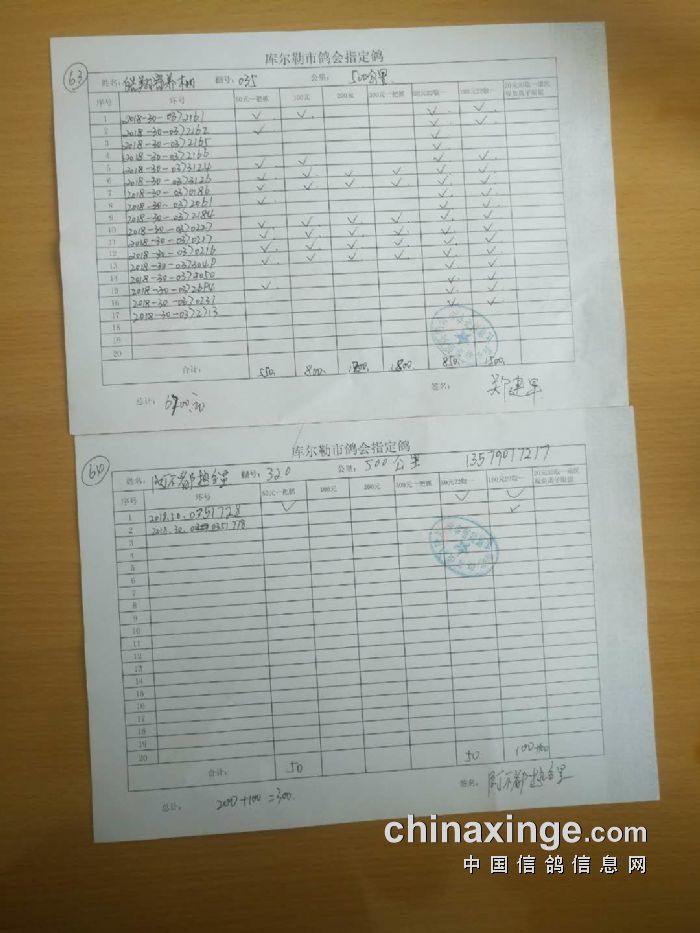 63
库尔勒市鸽会指定鸽
姓名: 棚号: 035 公里: 500公里
序号 环号 50元一把抓 100元 200元 300元一把抓
1 2018-30-0372161
2 2018-30-0372162
3 2018-30-0372165
4 2018-30-0372166
5 2018-30-0373124
6 2018-30-0373126
7 2018-30-0370186
8 2018-30-0372061
9 2018-30-0372184
10 2018-30-0370227
11 2018-30-0370217
12 2018-30-0370216
13 2018-30-0373049
14 2018-30-0373050
15 2018-30-0372694
16 2018-30-0370231
17 2018-30-0372713
18
19
20
合计: 550 800 1800 850 1500
总计: 签名: 郑建军
64
库尔勒市鸽会指定鸽
姓名: 棚号: 320 公里: 500公里 13579017217
序号 环号 50元一把抓 100元 200元 300元一把抓
1 2018.30.0351728
2 2018.30. 0351778
3
4
5
6
7
8
9
10
11
12
13
14
15
16
17
18
19
20
合计: 50 50 100
总计: 200+100=300 签名:
chinaxinge.com
中国信鸽信息网